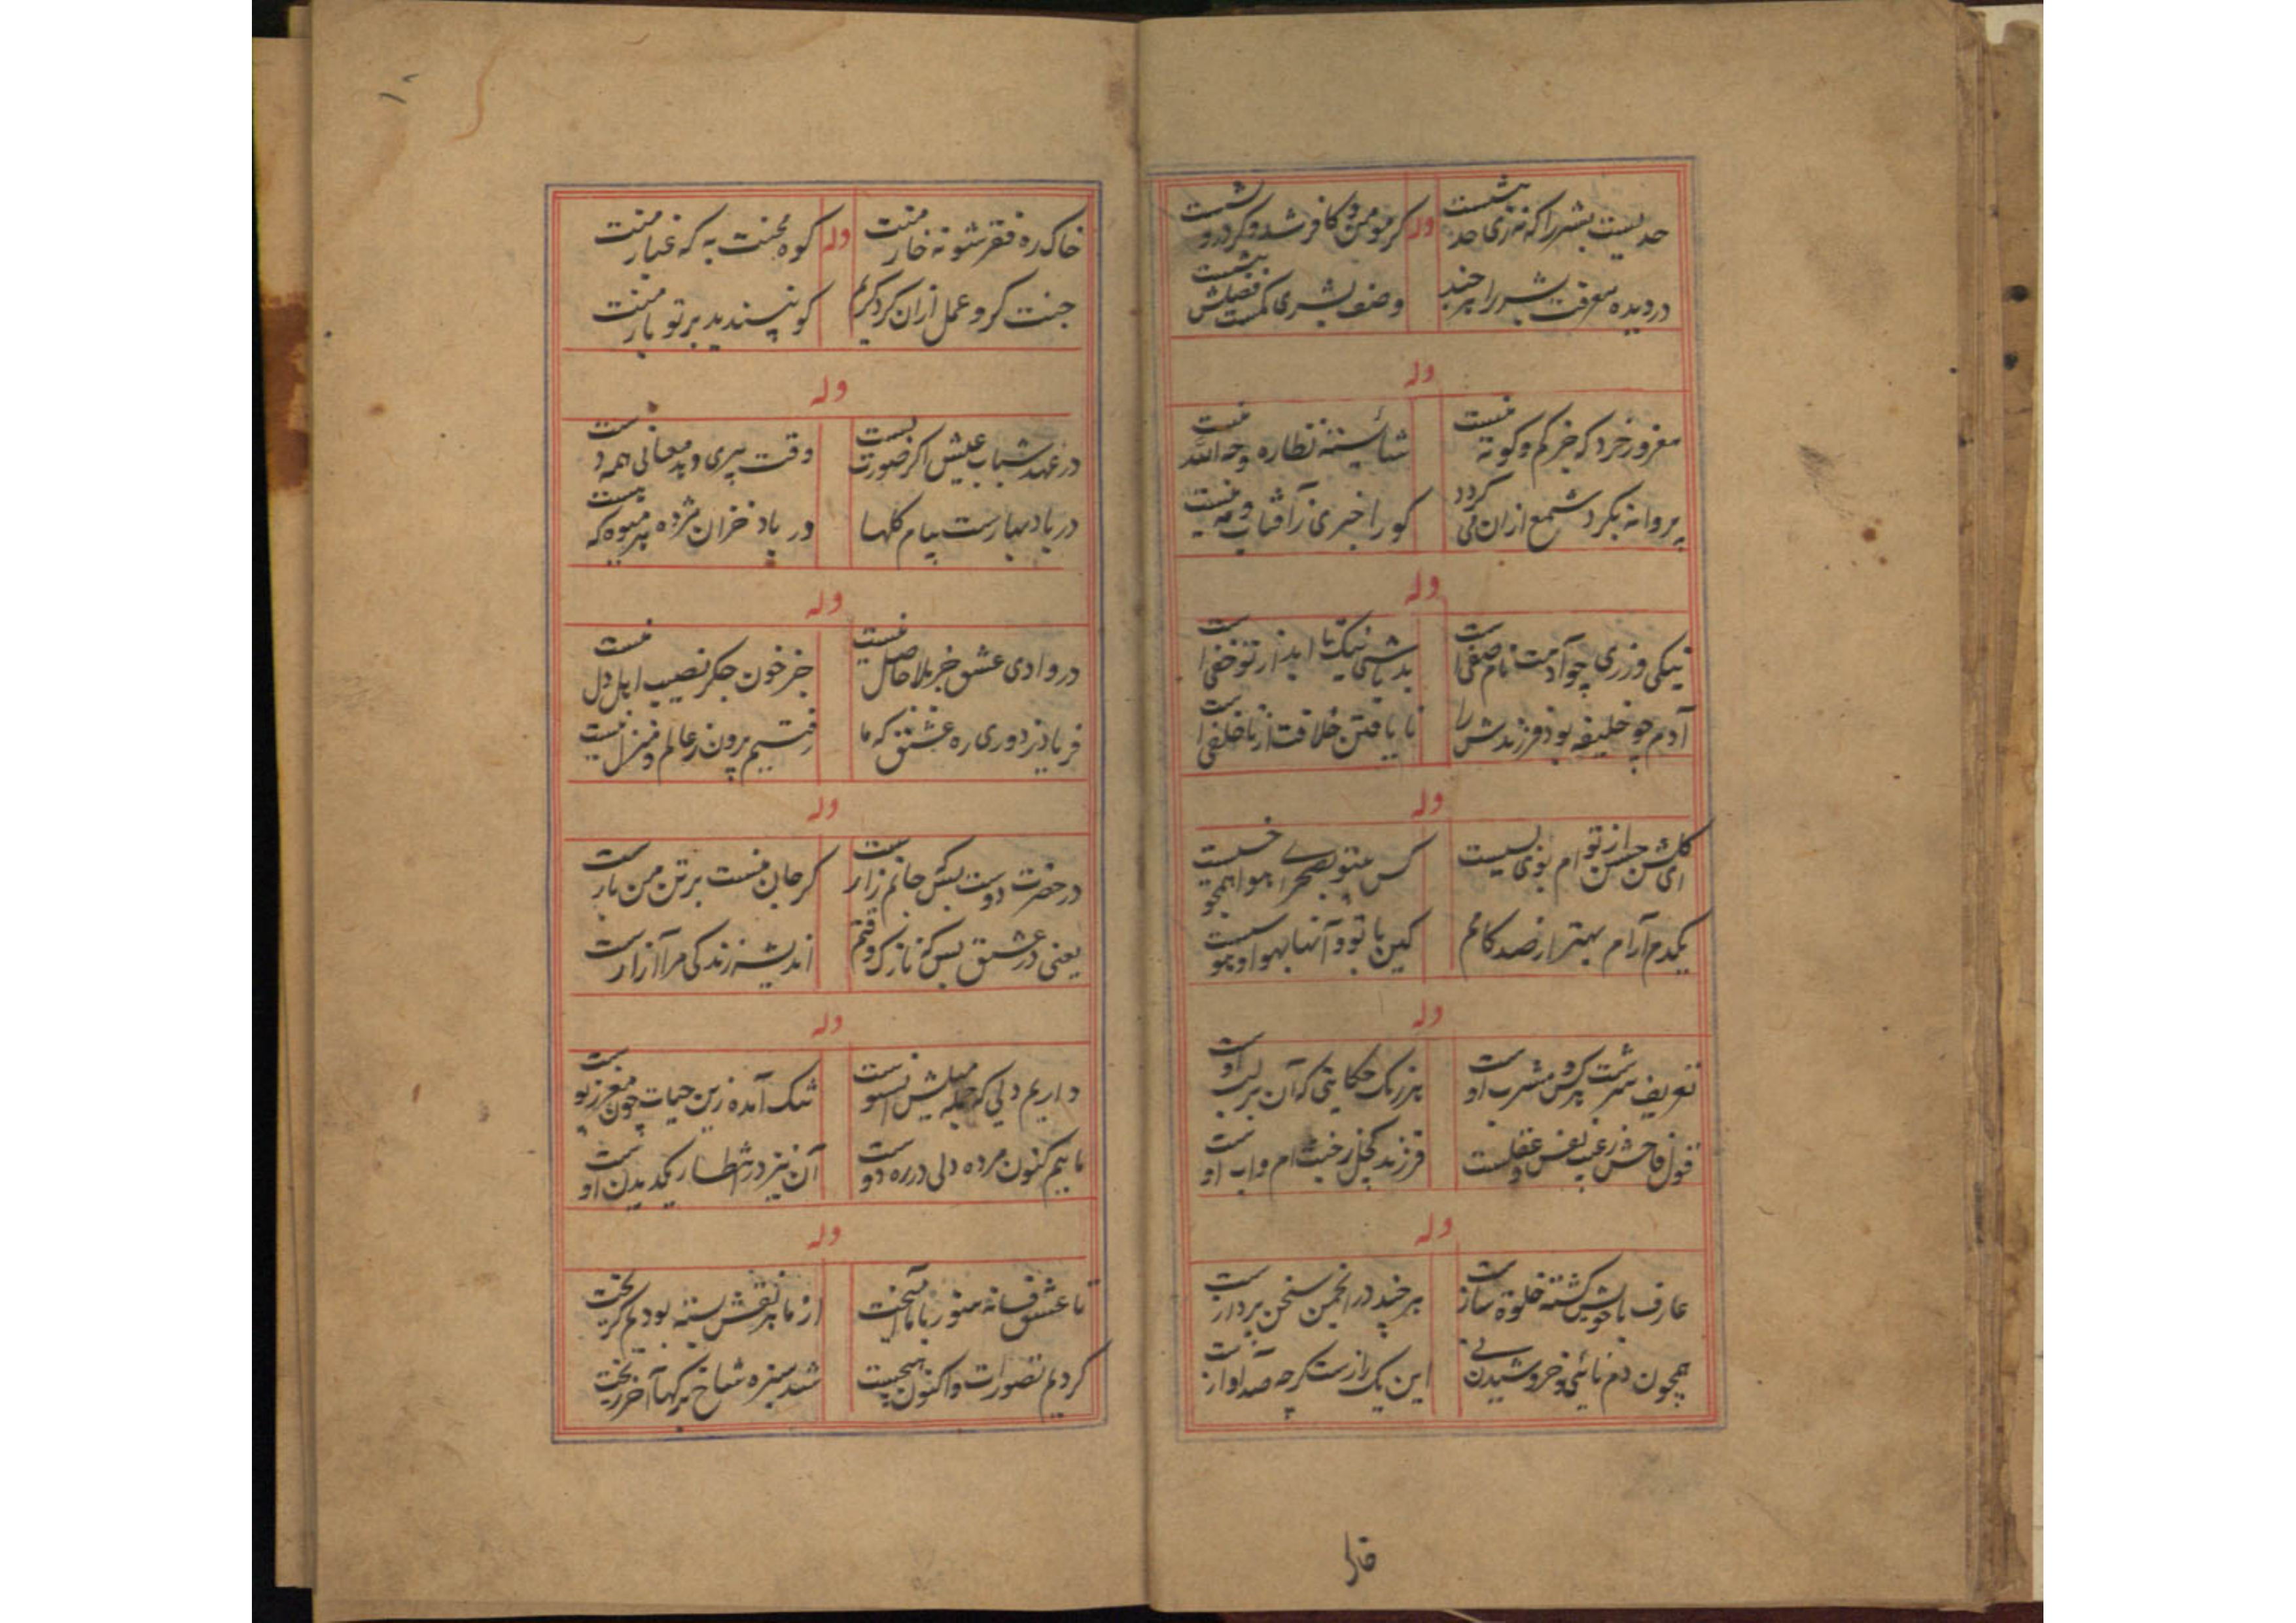 حدیست بشر را که نه زی حد بیشست وله کر مومن و کافر شد و کر دروشست
در دیده معرفت بشر را هر چند وصف بشری کمست فضلش بیشست
وله
مغرور خرد که جز کم و کوته نیست شائسته نظاره وجه الله نیست
پروانه بکرد شمع ازان می کردد کور را خبری ز آفتاب و مه نیست
وله
نیکی ورزی چو آدمت نام صفی است بد باشی نیک تا ابد از تو خفی است
آدم چو خلیفه بود فرزندش را نا یافتن خلافت از ناخلفی است
وله
ای کلشن حسن از تو ام بوی بسیست کس بصحرا هوا همچو خسیست
یکدم آرام بهتر از صد کامم کین با تو و آنها بهوا و
وله
تعریف سرشت کس مشرب اوست هر رنک حکایتی که آن بر لب اوست
قول فاحش نفس و عقلست فرزند ام و اب اوست
وله
عارف با خویش کشته خلوة سازست هر چند در انجمن سخن پردازست
همچون دم نائی و خروشیدن نی این یک رازست کرچه صد آوازست
قالر
۱۰
خاک ره فقر شو نه خار منت وله کوه محنت به که غبار منت
جنت کرو عمل ازان کرد کریم کو نپسندید بر تو بار منت
وله
در عهد شباب عیش اکر صورت بست وقت پیری دهد معانی همه دست
در باد بهارست پیام کلها در باد خزان مژده هر میوه که هست
وله
در وادی عشق جز بلا حاصل نیست جز خون جکر نصیب اهل دل نیست
فریاد ز دوری ره عشق که ما رفتیم برون ز عالم و منزل نیست
وله
در حضرت دوست بسکه جانم زارست کر جان منست بر تن من بارست
یعنی در عشق بس که نازک وقتم اندیشه زندکی مرا آزارست
وله
داریم دلی که جمله میلش سوست تنک آمده زین حیات چون مغز ز پوست
مائیم کنون مرده دلی در ره دوست آن نیز در انتظار یکدیدن اوست
وله
تا عشق فسانه سنور با ما آمیخت از ما هر نقش بسته بودیم کریخت
کردیم تصورات و اکنون هیچست شد سبزه شاخ برکها آخر ریخت